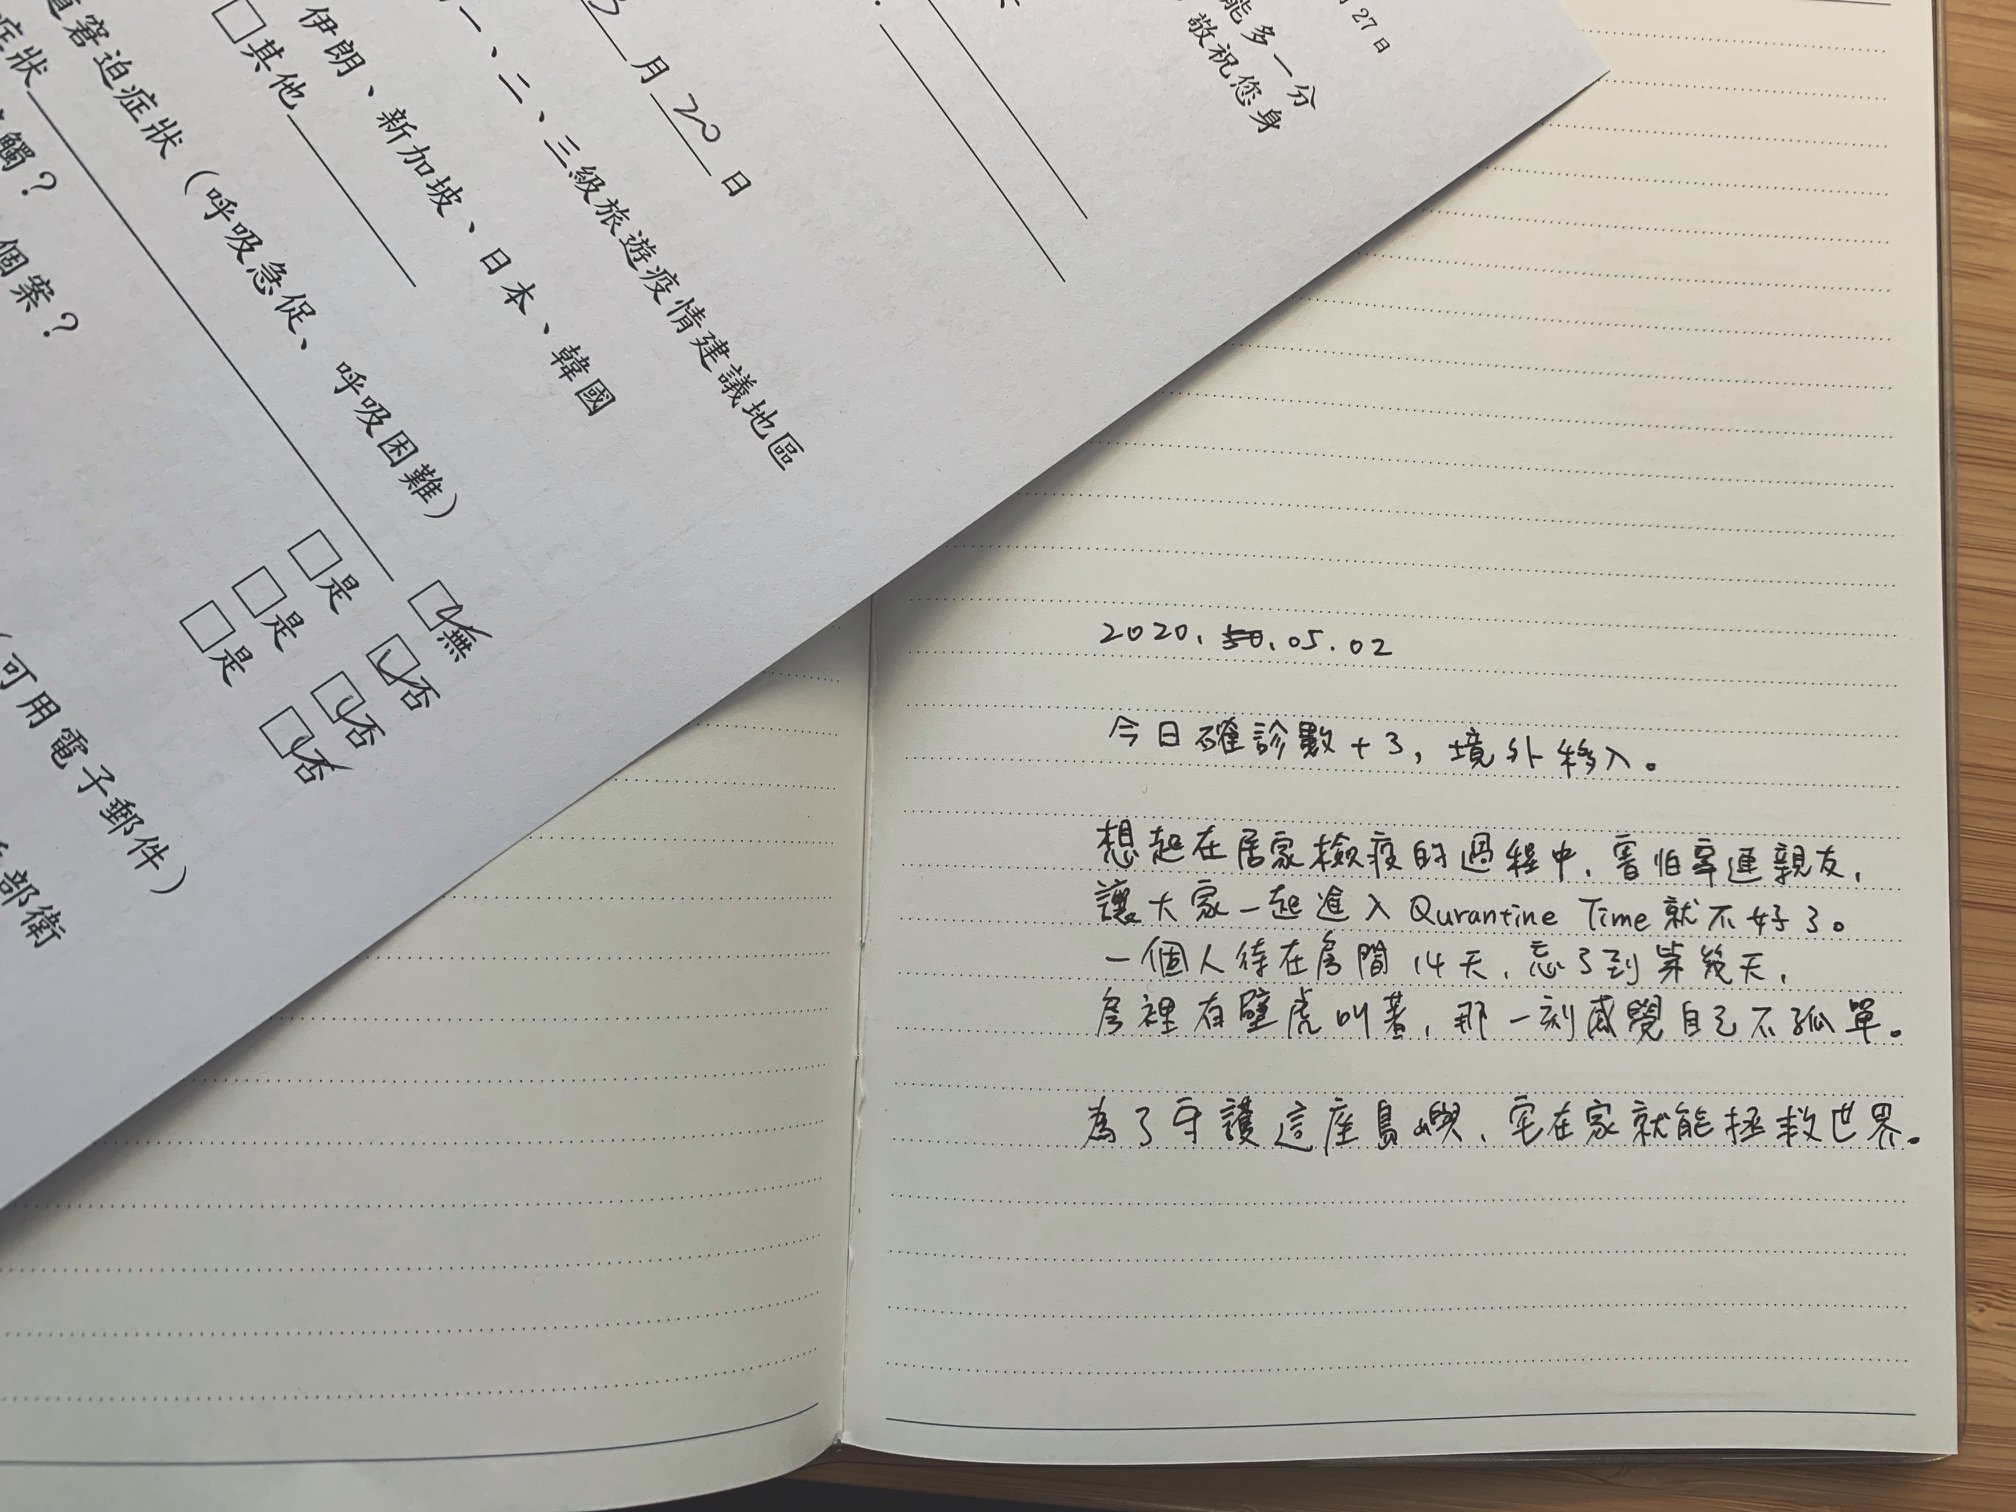 27日
能多一分
敬祝您身
月20日
一、二、三級旅遊疫情建議地區
伊朗、新加坡、日本、韓國
□其他
窘迫症狀（呼吸急促、呼吸困難）
症狀
觸？
個案？
□無
□是 □否
□是 □否
□是 □否
（可用電子郵件）
部衛
2020. 05.02
今日確診數+3, 境外移入。
想起在居家檢疫的過程中, 害怕牽連親友,
讓大家一起進入 Qurantine Time 就不好了。
一個人待在房間 14天, 忘了到第幾天,
房裡有壁虎叫著, 那一刻感覺自己不孤單。
為了守護這座島嶼, 宅在家就能拯救世界。